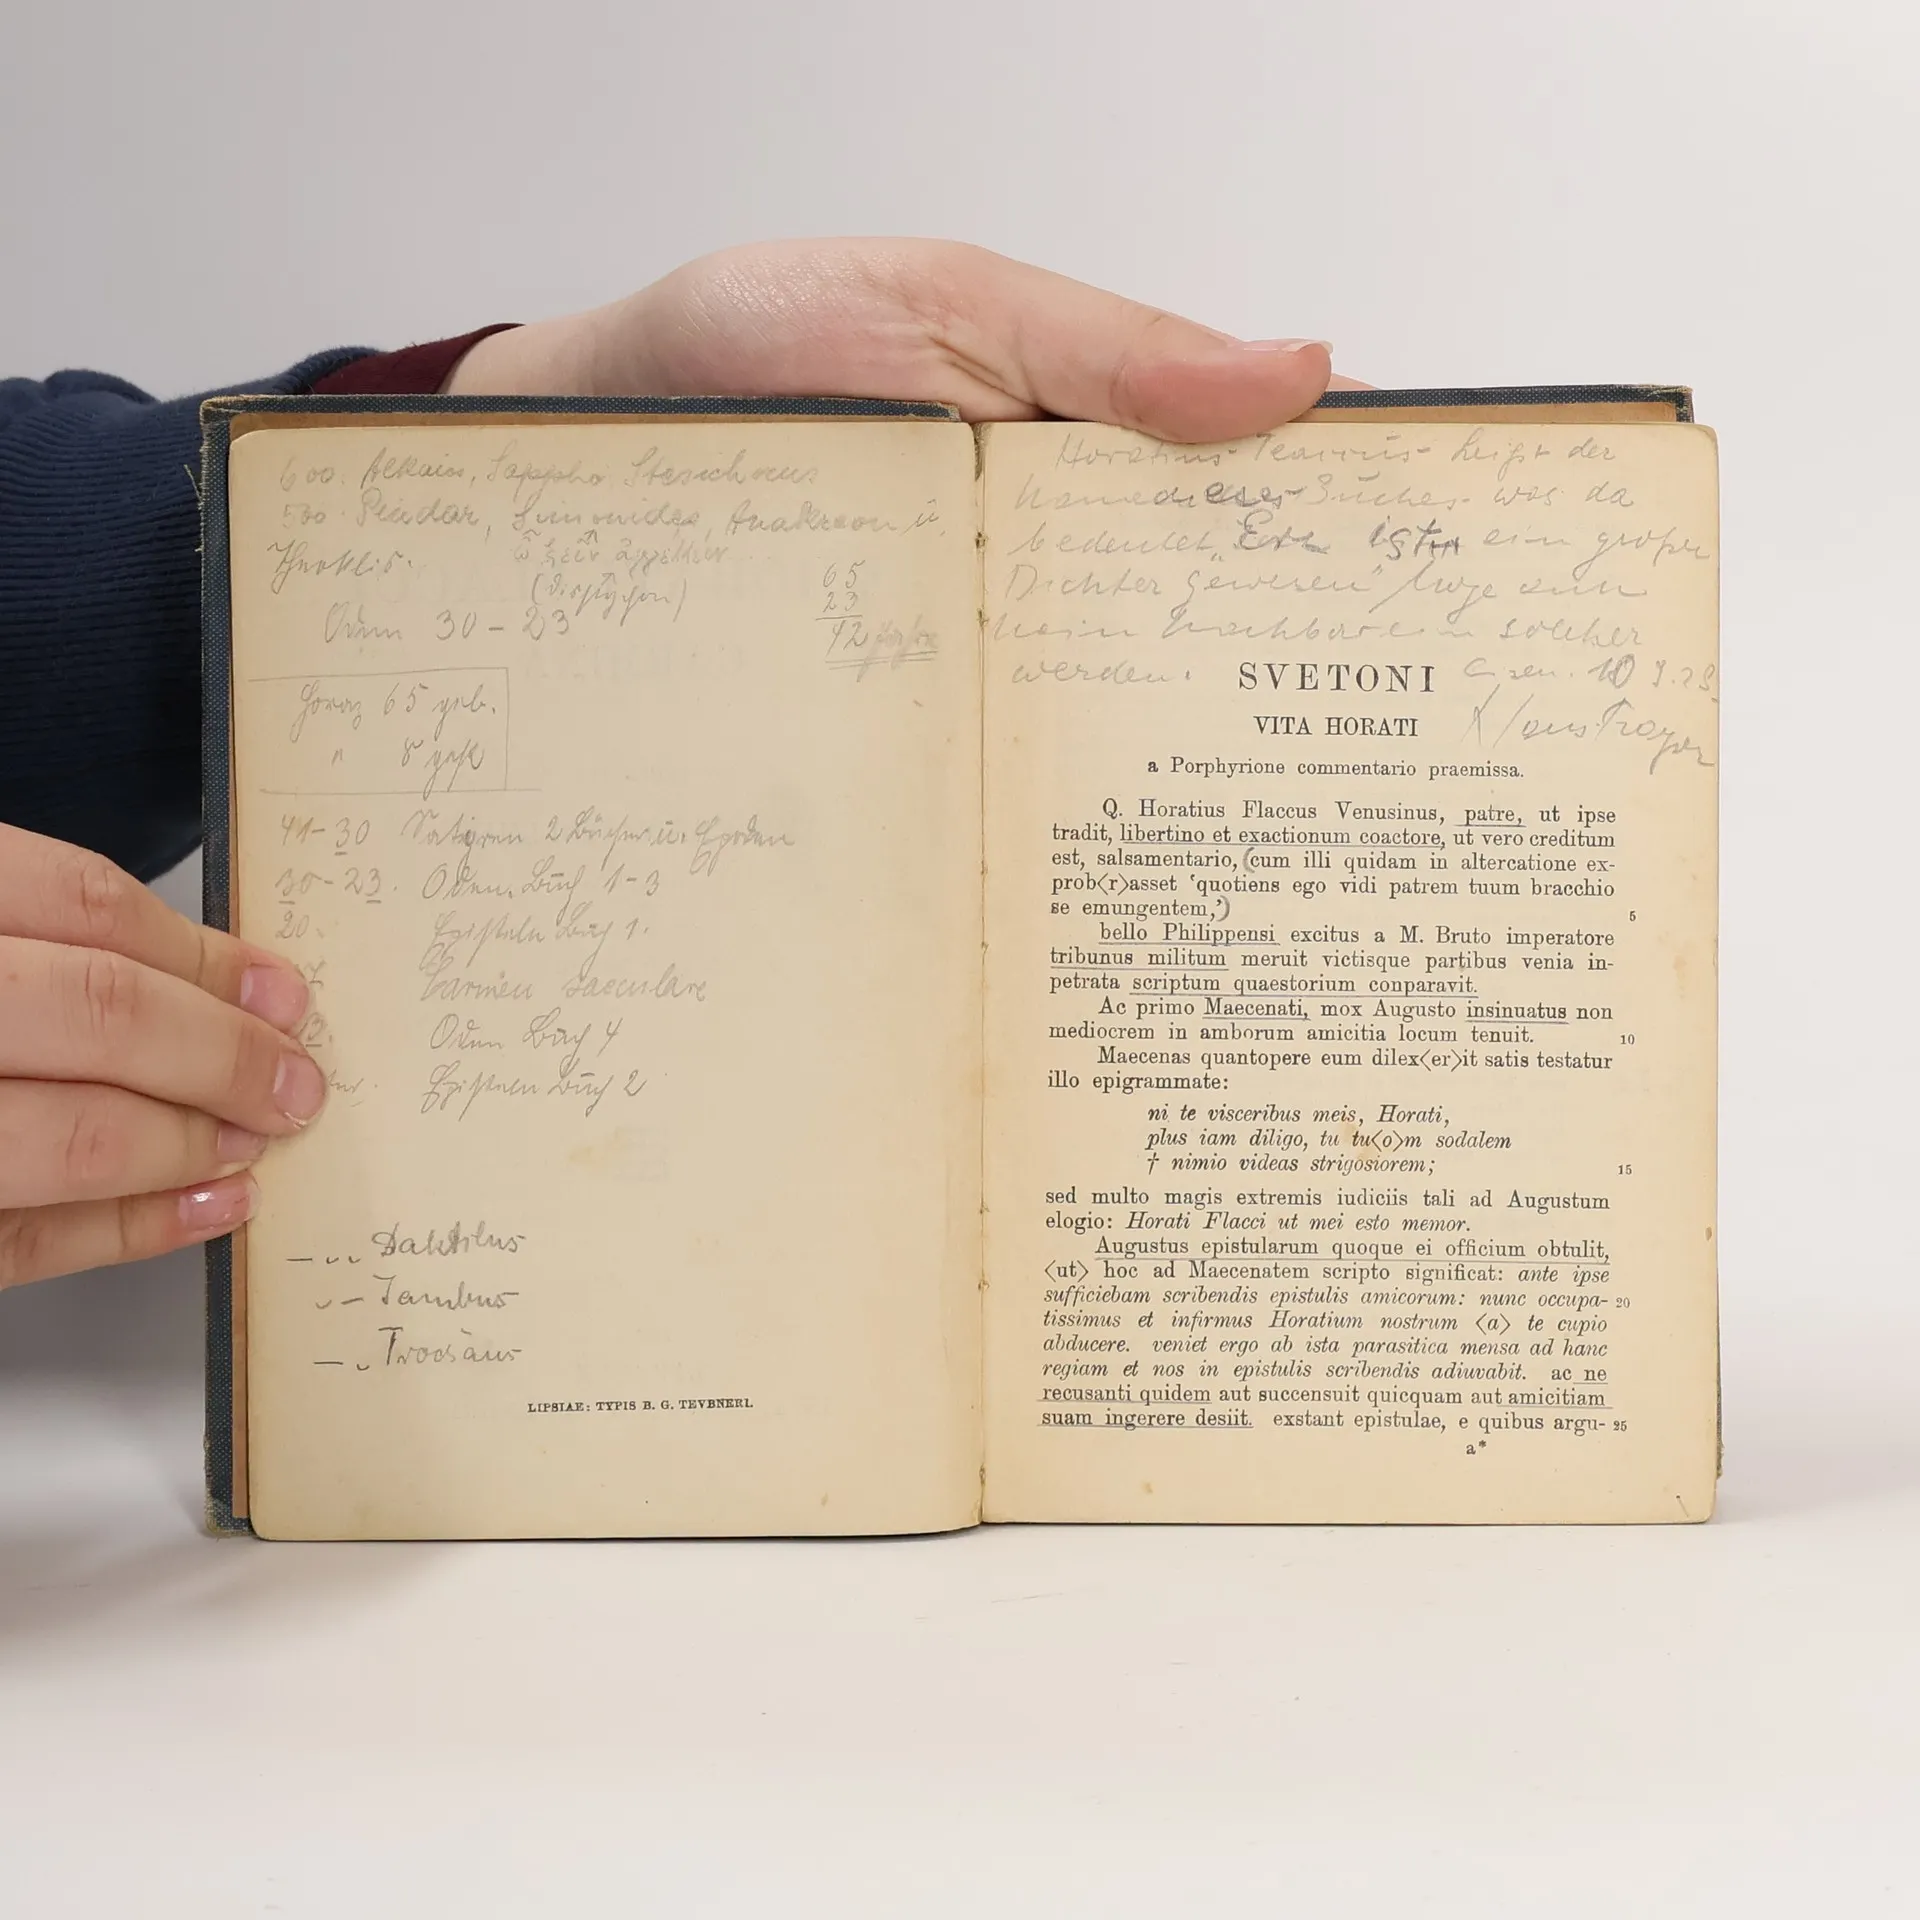 600. Alkaios, Sappho Stesichorus
500. Pindar, Simonides, Anakreon u.
(Distichon)
Oden 30 – 23
65
23
42 Jahre
Horaz 65 geb.
" 8 gest
41–30 Satyren 2 Bücher u. Epoden
30–23. Oden. Buch 1–3
20. Episteln Buch 1.
Carmen saeculare
13. Oden Buch 4
Episteln Buch 2
– ᴗ ᴗ Daktilus
ᴗ – Jambus
– ᴗ Trochäus
LIPSIAE: TYPIS B. G. TEVBNERI.
Horatius heißt der
Name dieses Buches was da
bedeutet „Er ist ein großer
Dichter gewesen" Möge auch
mein Nachbar ein solcher
werden.
Klaus
SVETONI
VITA HORATI
a Porphyrione commentario praemissa.
Q. Horatius Flaccus Venusinus, patre, ut ipse
tradit, libertino et exactionum coactore, ut vero creditum
est, salsamentario, (cum illi quidam in altercatione ex-
prob<r>asset 'quotiens ego vidi patrem tuum bracchio
se emungentem,') 5
bello Philippensi excitus a M. Bruto imperatore
tribunus militum meruit victisque partibus venia in-
petrata scriptum quaestorium conparavit.
Ac primo Maecenati, mox Augusto insinuatus non
mediocrem in amborum amicitia locum tenuit. 10
Maecenas quantopere eum dilex<er>it satis testatur
illo epigrammate:
ni te visceribus meis, Horati,
plus iam diligo, tu tu<o>m sodalem
† nimio videas strigosiorem; 15
sed multo magis extremis iudiciis tali ad Augustum
elogio: Horati Flacci ut mei esto memor.
Augustus epistularum quoque ei officium obtulit,
<ut> hoc ad Maecenatem scripto significat: ante ipse
sufficiebam scribendis epistulis amicorum: nunc occupa- 20
tissimus et infirmus Horatium nostrum <a> te cupio
abducere. veniet ergo ab ista parasitica mensa ad hanc
regiam et nos in epistulis scribendis adiuvabit. ac ne
recusanti quidem aut succensuit quicquam aut amicitiam
suam ingerere desiit. exstant epistulae, e quibus argu- 25
a*